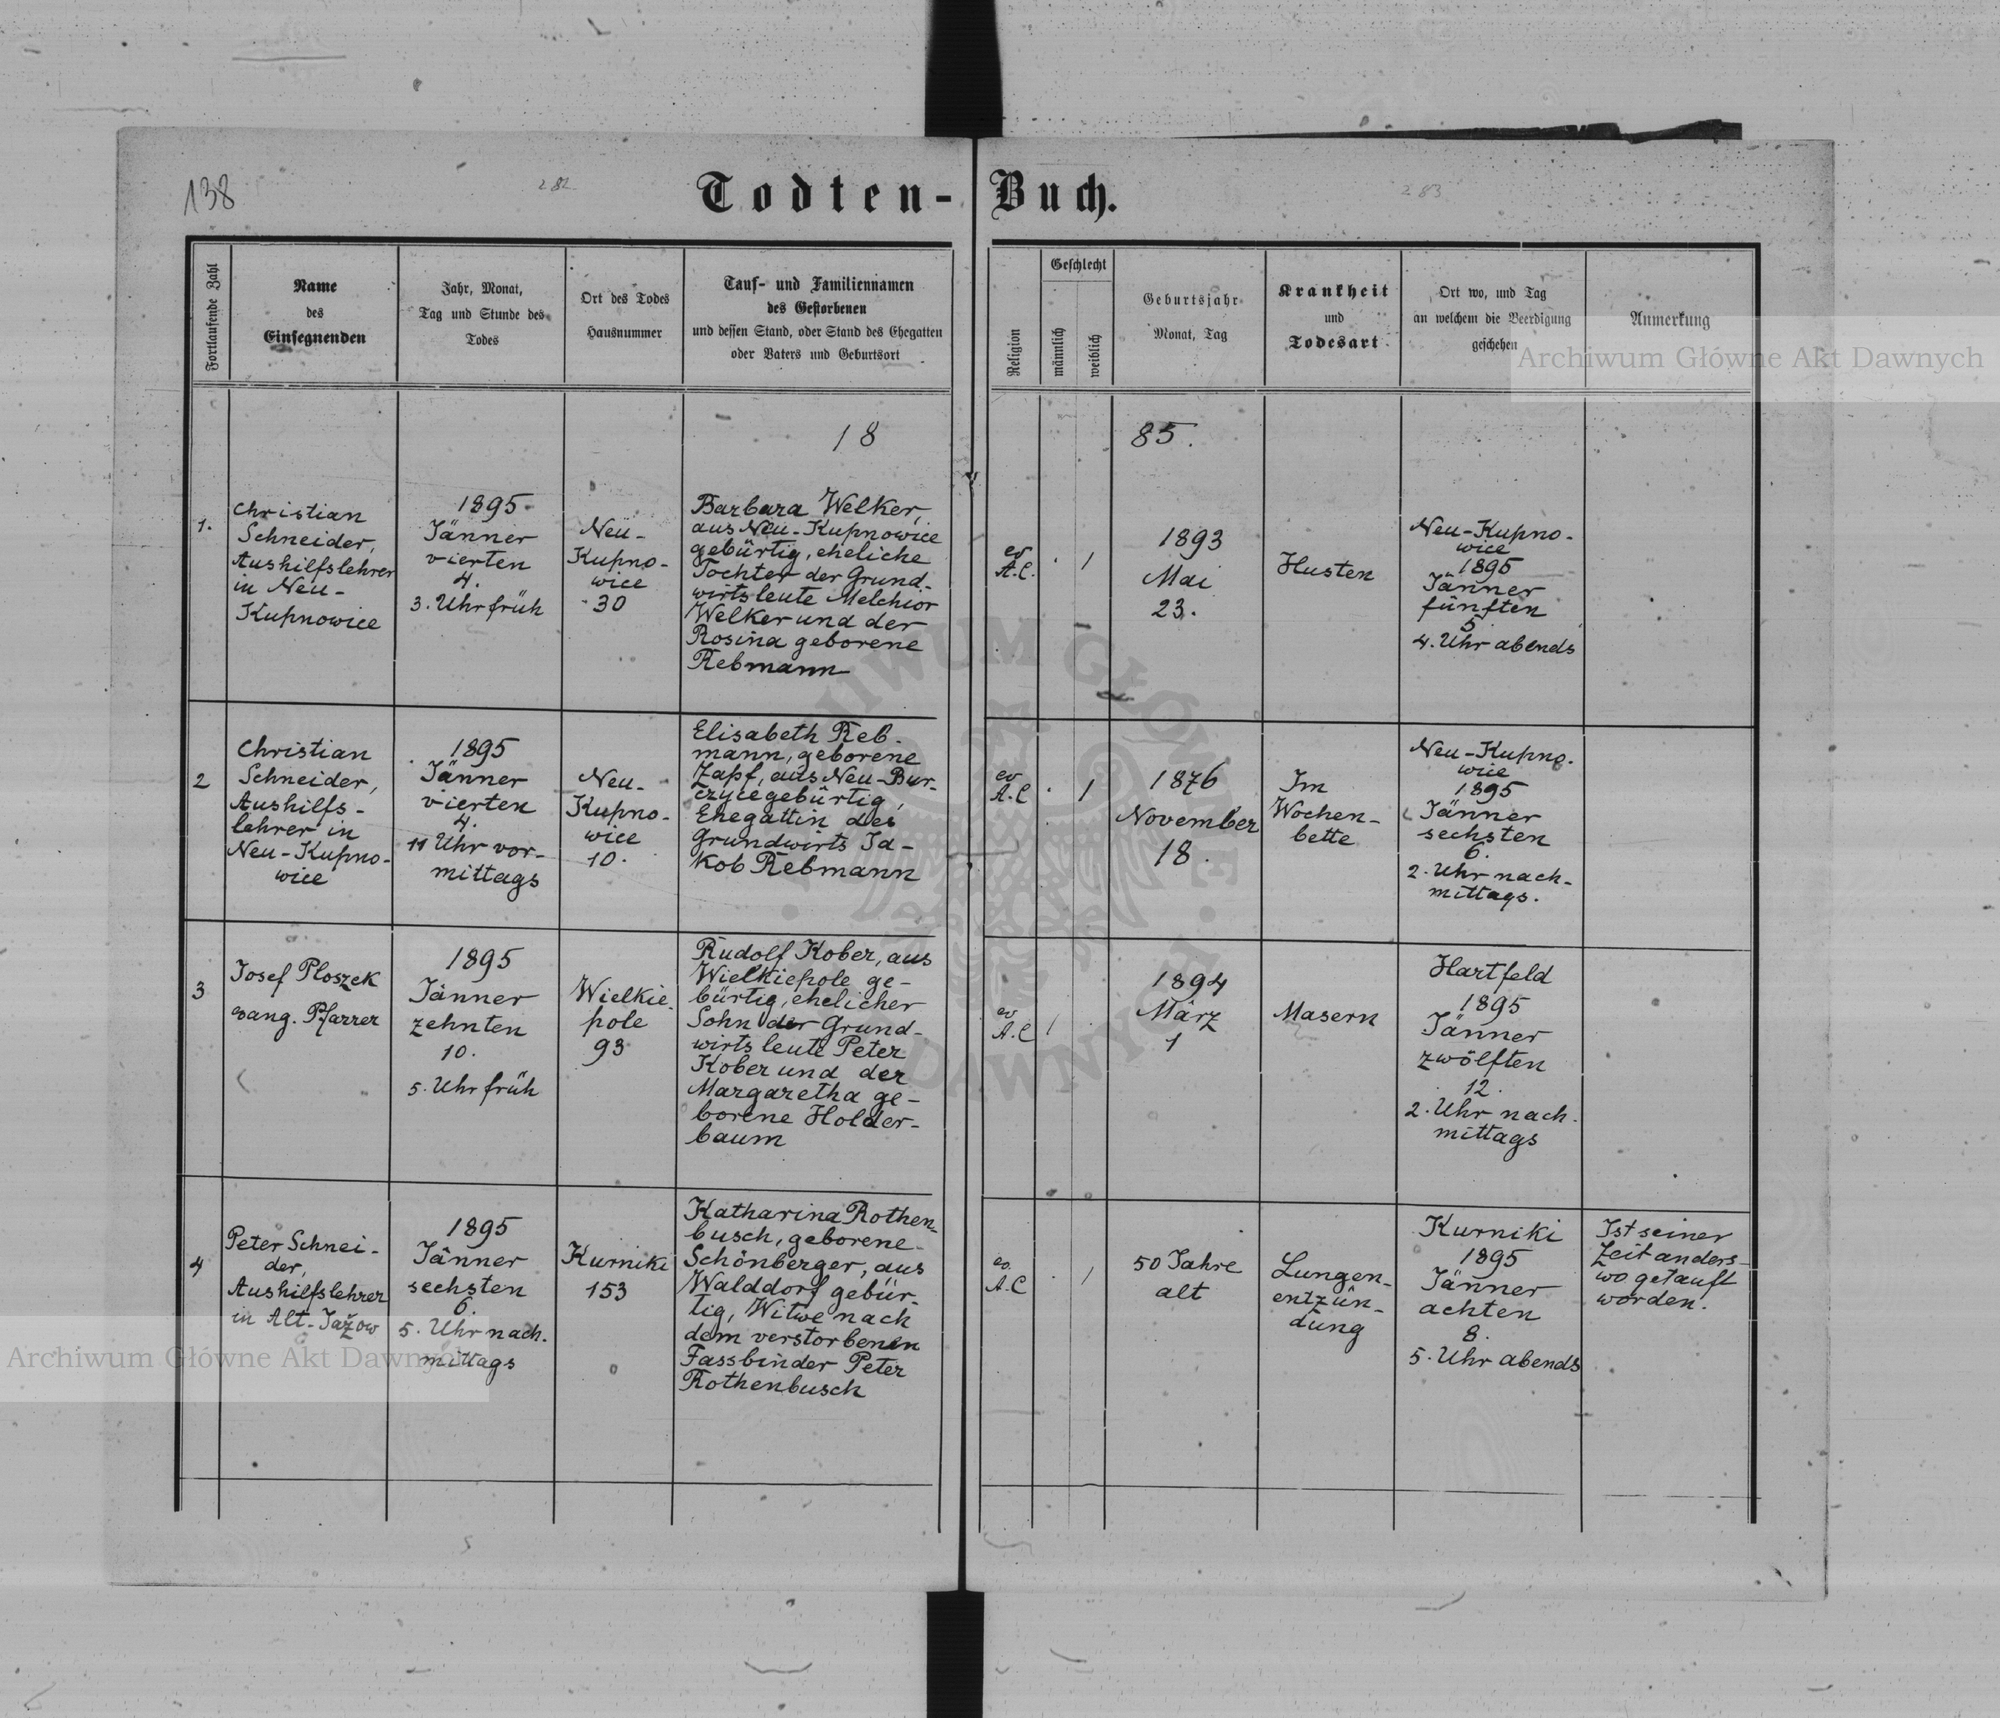 138
282
Todten-Buch.
283
Fortlaufende Zahl
Name
des
Einsegnenden
Jahr, Monat,
Tag und Stunde des
Todes
Ort des Todes
Hausnummer
Tauf- und Familiennamen
des Gestorbenen
und dessen Stand, oder Stand des Ehegatten
oder Vaters und Geburtsort
Religion
Geschlecht
männlich
weiblich
Geburtsjahr
Monat, Tag
Krankheit
und
Todesart
Ort wo, und Tag
an welchem die Beerdigung
geschehen
Anmerkung
Archiwum Główne Akt Dawnych
18
85.
1.
Christian
Schneider,
Aushilfslehrer
in Neu-
Kupnowice
1895
Jänner
vierten
4.
3. Uhr früh
Neu-
Kupno-
wice
30
Barbara Welker,
aus Neu-Kupnowice
gebürtig, eheliche
Tochter der Grund-
wirtsleute Melchior
Welker und der
Rosina geborene
Rebmann
ev
A.C.
1
1893
Mai
23.
Husten
Neu-Kupno-
wice
1895
Jänner
fünften
5.
4. Uhr abends
2
Christian
Schneider,
Aushilfs-
lehrer in
Neu-Kupno-
wice
1895
Jänner
vierten
4.
11 Uhr vor-
mittags
Neu-
Kupno-
wice
10.
Elisabeth Reb-
mann, geborene
Zapf, aus Neu-Bur-
czyce gebürtig,
Ehegattin des
Grundwirts Ja-
kob Rebmann
ev
A.C
1
1876
November
18.
Im
Wochen-
bette
Neu-Kupno-
wice
1895
Jänner
sechsten
6.
2. Uhr nach-
mittags.
3
Josef Ploszek
evang. Pfarrer
1895
Jänner
zehnten
10.
5. Uhr früh
Wielkie-
pole
93
Rudolf Kober, aus
Wielkiepole ge-
bürtig, ehelicher
Sohn der Grund-
wirtsleute Peter
Kober und der
Margaretha ge-
borene Holder-
baum
ev
A.C
1
1894
März
1
Masern
Hartfeld
1895
Jänner
zwölften
12.
2. Uhr nach-
mittags
4
Peter Schnei-
der,
Aushilfslehrer
in Alt-Jażow
1895
Jänner
sechsten
6.
5. Uhr nach-
mittags
Kurniki
153
Katharina Rothen-
busch, geborene
Schönberger, aus
Walddorf gebür-
tig, Witwe nach
dem verstorbenen
Fassbinder Peter
Rothenbusch
ev.
A.C
1
50 Jahre
alt
Lungen-
entzün-
dung
Kurniki
1895
Jänner
achten
8.
5. Uhr abends
Ist seiner
Zeit anders-
wo getauft
worden.
Archiwum Główne Akt Dawnych
ARCHIWUM GŁÓWNE AKT DAWNYCH